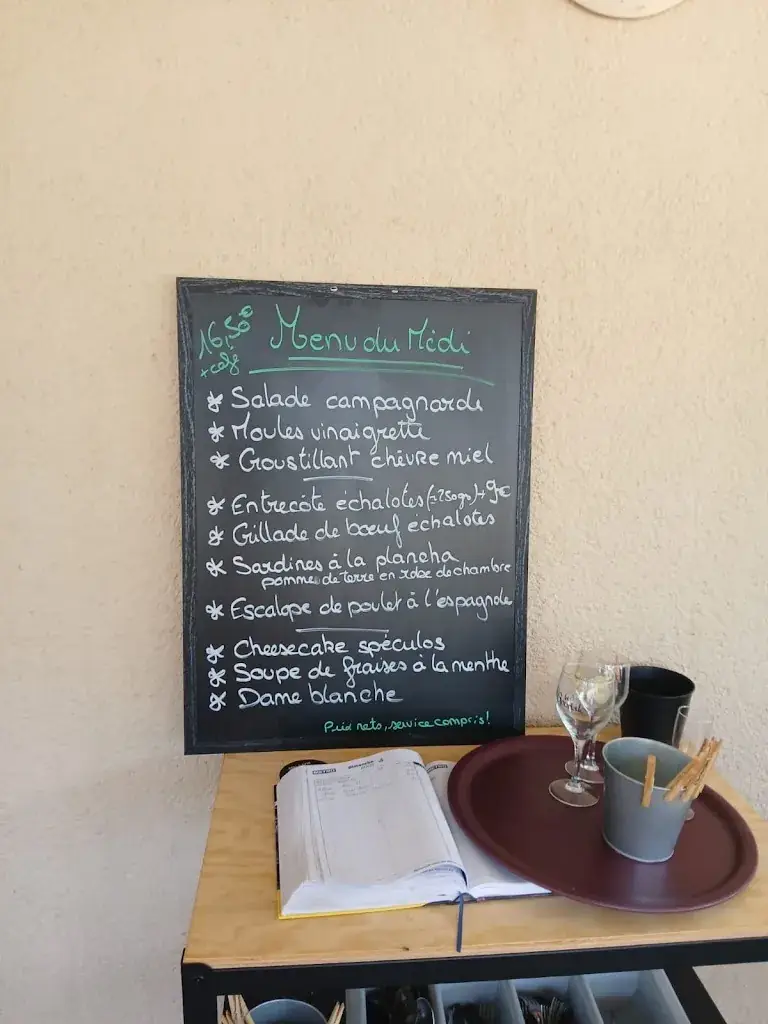 16,50€
+ café
Menu du Médi
* Salade campagnarde
* Moules vinaigrette
* Croustillant chèvre miel
* Entrecôte échalotes (±250gr) + 9€
* Grillade de bœuf échalotes
* Sardines à la plancha
pommes de terre en robe de chambre
* Escalope de poulet à l'espagnole
* Cheesecake spéculos
* Soupe de fraises à la menthe
* Dame blanche
Prix nets, service compris!
METRO